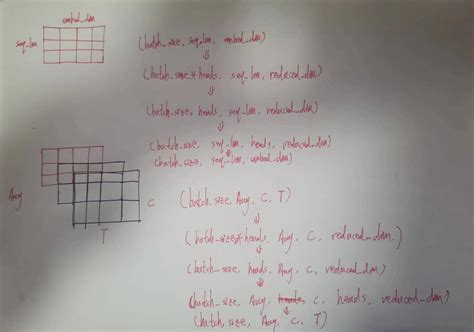 embed_dim
seq_len
(batch_size, seq_len, embed_dim)
⇓
(batch_size*heads, seq_len, reduced_dim)
⇓
(batch_size, heads, seq_len, reduced_dim)
⇓
(batch_size, seq_len, heads, reduced_dim)
(batch_size, seq_len, embed_dim)
Aug
C
T
(batch_size, Aug, C, T)
⇓
(batch_size*heads, Aug, C, reduced_dim.)
⇓
(batch_size, heads, Aug, C, reduced_dim)
⇓
(batch_size, Aug, heads, C, heads, reduced_dim)
(batch_size, Aug, C, T)